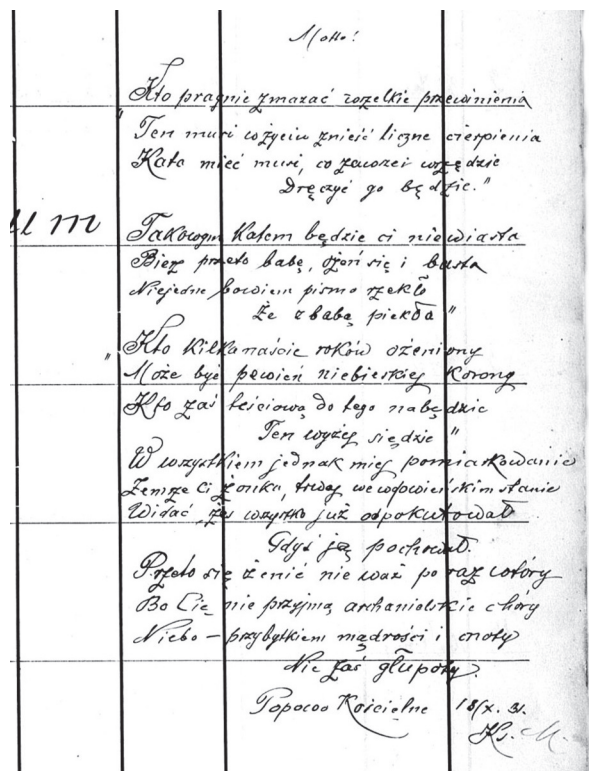 Motto!
Kto pragnie zmazać wszelkie przewinienia
„Ten musi w życiu znieść liczne cierpienia
Kata mieć musi, co zawsze i wszędzie
Dręczyć go będzie."
um
Takowym Katem będzie ci niewiasta
Bierz przeto babę, ożeń się i basta
Niejedne bowiem pismo rzekło
Że z babą piekło"
„Kto Kilkanaście roków ożeniony
Może być pewień niebieskiej Korony
Kto zaś teściową do tego nabędzie
Ten wyżej siędzie"
W wszystkiem jednak miej pomiarkowanie
Zemrze Ci żonka, trwaj we wdowieńskim stanie
Widać, żeś wszystko już odpokutował
Gdyś ją pochował.
Przeto się żenić nie waż po raz wtóry
Bo Cię nie przyjmą archanielskie chóry
Niebo – przybytkiem mądrości i cnoty
Nie zaś głupoty.
Popowo Kościelne 18/X. 31.
Ks. M.